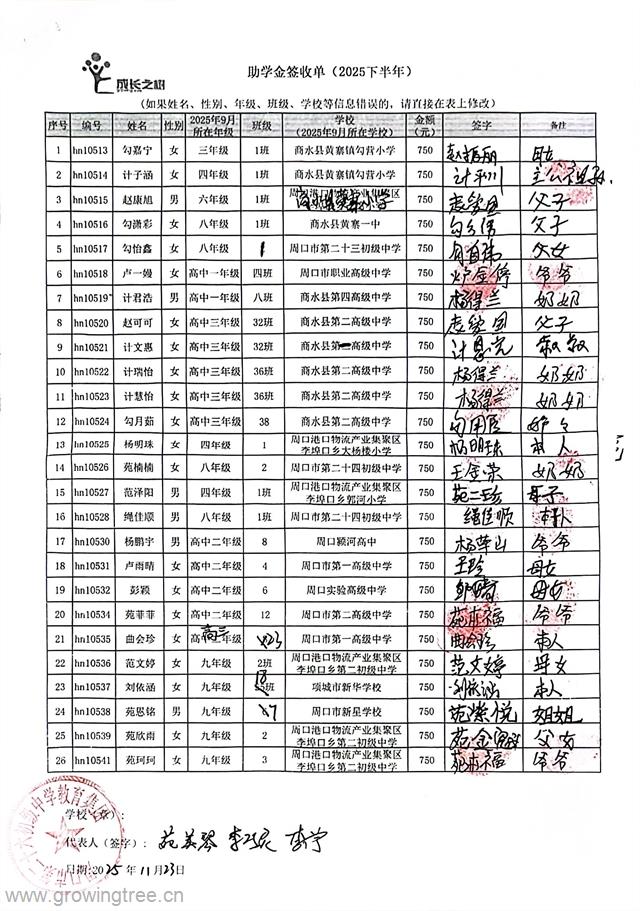 成长之树
助学金签收单（2025下半年）
（如果姓名、性别、年级、班级、学校等信息错误的，请直接在表上修改）
序号 编号 姓名 性别 2025年9月所在年级 班级 学校（2025年9月所在学校） 金额（元） 签字 备注
1 hn10513 勾嘉宁 女 三年级 1班 商水县黄寨镇勾营小学 750 赵振丽 母女
2 hn10514 计子涵 女 四年级 1班 商水县黄寨镇勾营小学 750
3 hn10515 赵康旭 男 六年级 1班 750 父子
4 hn10516 勾潇彩 女 八年级 1班 商水县黄寨一中 750 父子
5 hn10517 勾怡鑫 女 八年级 1 周口市第二十三初级中学 750 父女
6 hn10518 卢一嫚 女 高中一年级 四班 周口市职业高级中学 750 爷爷
7 hn10519 计君浩 男 高中一年级 八班 商水县第四高级中学 750 杨得兰 奶奶
8 hn10520 赵可可 女 高中三年级 32班 商水县第二高级中学 750 父子
9 hn10521 计文惠 女 高中三年级 32班 商水县第一高级中学 750
10 hn10522 计瑞怡 女 高中三年级 36班 商水县第二高级中学 750 杨得兰 奶奶
11 hn10523 计慧怡 女 高中三年级 36班 商水县第二高级中学 750 杨得兰 奶奶
12 hn10524 勾月茹 女 高中三年级 38 商水县第二高级中学 750
13 hn10525 杨明珠 女 四年级 1 周口港口物流产业集聚区李埠口乡大杨楼小学 750 杨明珠 本人
14 hn10526 苑楠楠 女 八年级 2 周口市第二十四初级中学 750 王金荣 奶奶
15 hn10527 范泽阳 男 四年级 1班 周口港口物流产业集聚区李埠口乡郭河小学 750 母子
16 hn10528 绳佳顺 男 八年级 1班 周口市第二十四初级中学 750 绳佳顺 本人
17 hn10530 杨鹏宇 男 高中二年级 8 周口颍河高中 750 杨华山 爷爷
18 hn10531 卢雨晴 女 高中二年级 4 周口市第二高级中学 750 王玲 母女
19 hn10532 彭颖 女 高中二年级 6 周口实验高级中学 750 母女
20 hn10534 苑菲菲 女 高中二年级 12 周口市第二高级中学 750 苑本福 爷爷
21 hn10535 曲会珍 女 高中二年级 高三 23 周口市第一高级中学 750 曲会珍 本人
22 hn10536 范文婷 女 九年级 2班 周口港口物流产业集聚区李埠口乡第二初级中学 750 范文婷 母女
23 hn10537 刘依涵 女 九年级 18 项城市新华学校 750 刘依涵 本人
24 hn10538 苑恩铭 男 九年级 7 周口市新星学校 750 苑紫悦 姐姐
25 hn10539 苑欣雨 女 九年级 2 周口港口物流产业集聚区李埠口乡第二初级中学 750 父女
26 hn10541 苑珂珂 女 九年级 3 周口港口物流产业集聚区李埠口乡第二初级中学 750 苑本福 爷爷
学校（章）：
代表人（签字）： 苑美琴
日期:2025年11月23日
www.growingtree.cn